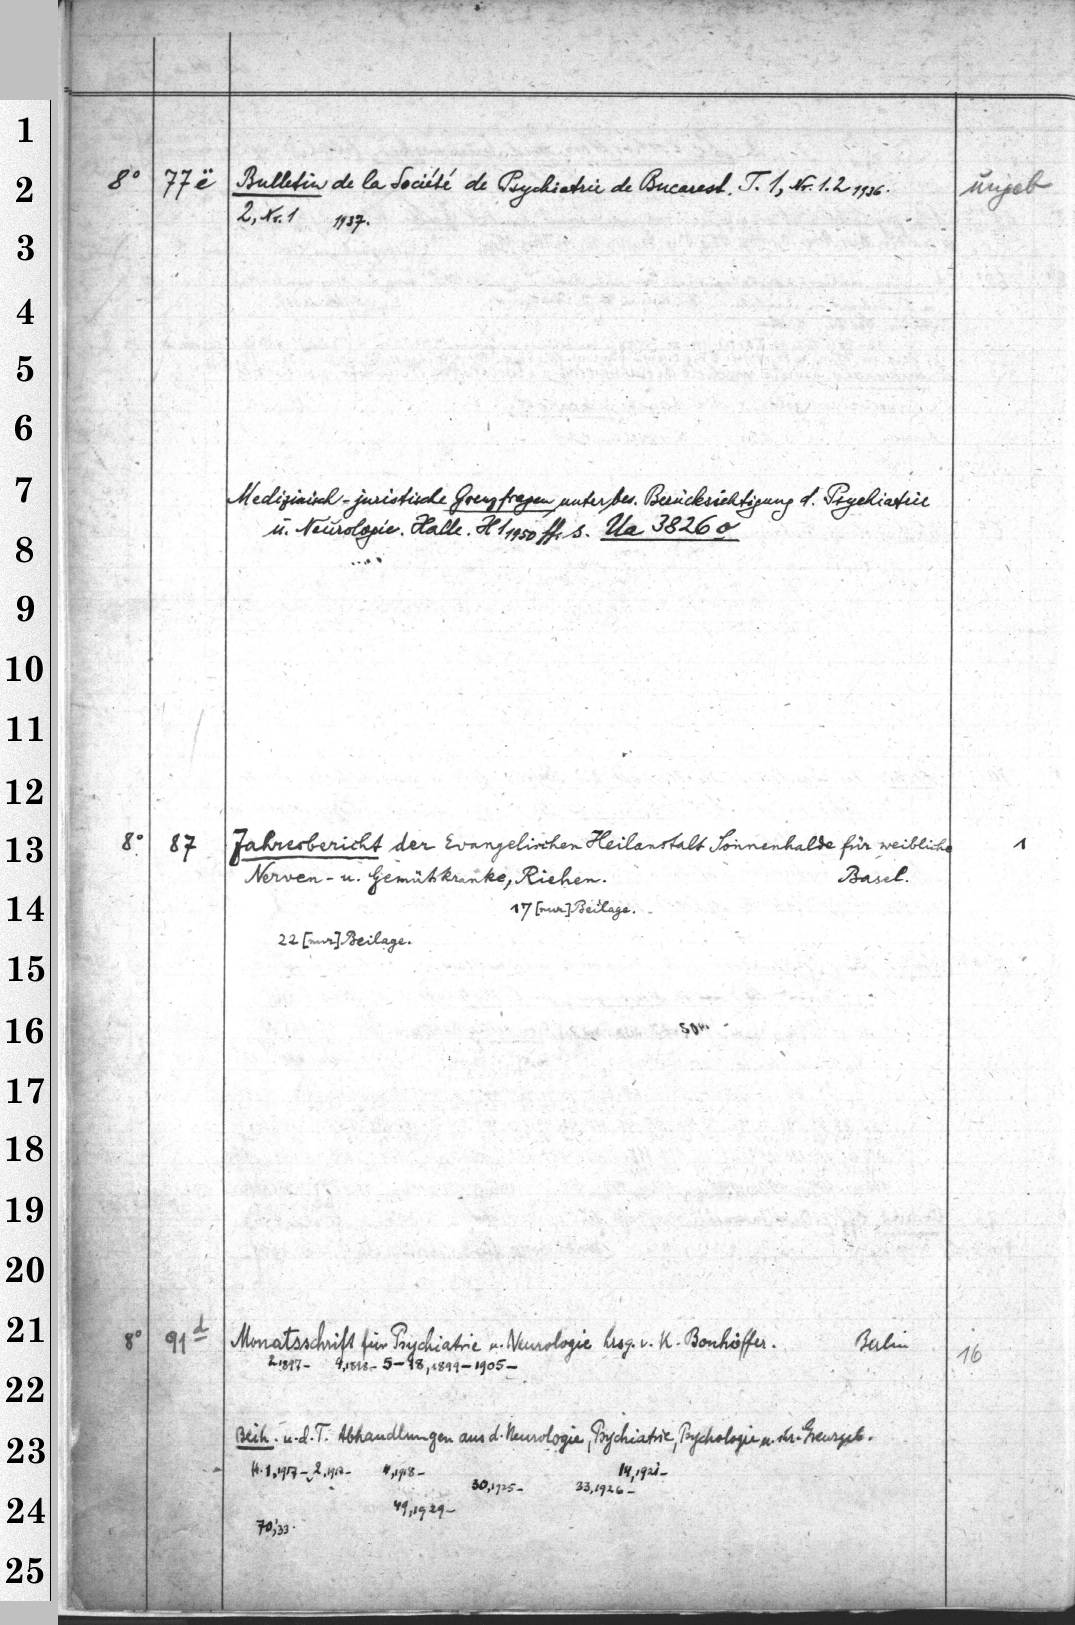 1
2
3
4
5
6
7
8
9
10
11
12
13
14
15
16
17
18
19
20
21
22
23
24
25
8° 77ë Bulletin de la Société de Psychiatrie de Bucarest. T. 1, Nr. 1.2 1936. ungeb
2, Nr. 1 1937.
Medizinisch-juristische Grenzfragen unter bes. Berücksichtigung d. Psychiatrie
u. Neurologie. Halle. H 1 1950 ff. s. Ua 3826 o
8° 87 Jahresbericht der Evangelischen Heilanstalt Sonnenhalde für weibliche 1
Nerven- u. Gemütskranke, Riehen. Basel.
17 [nur] Beilage.
22 [nur] Beilage.
50
8° 91 d Monatsschrift für Psychiatrie u. Neurologie hrsg. v. K. Bonhöffer. Berlin 16
2, 1897- 4, 1898- 5-18, 1899-1905-
Beih. u. d. T. Abhandlungen aus d. Neurologie, Psychiatrie, Psychologie u. ihr. Grenzgeb.
H. 1, 1917- 2, 1917- 4, 1918- 14, 1921-
30, 1925- 33, 1926-
49, 1929-
70, 33.